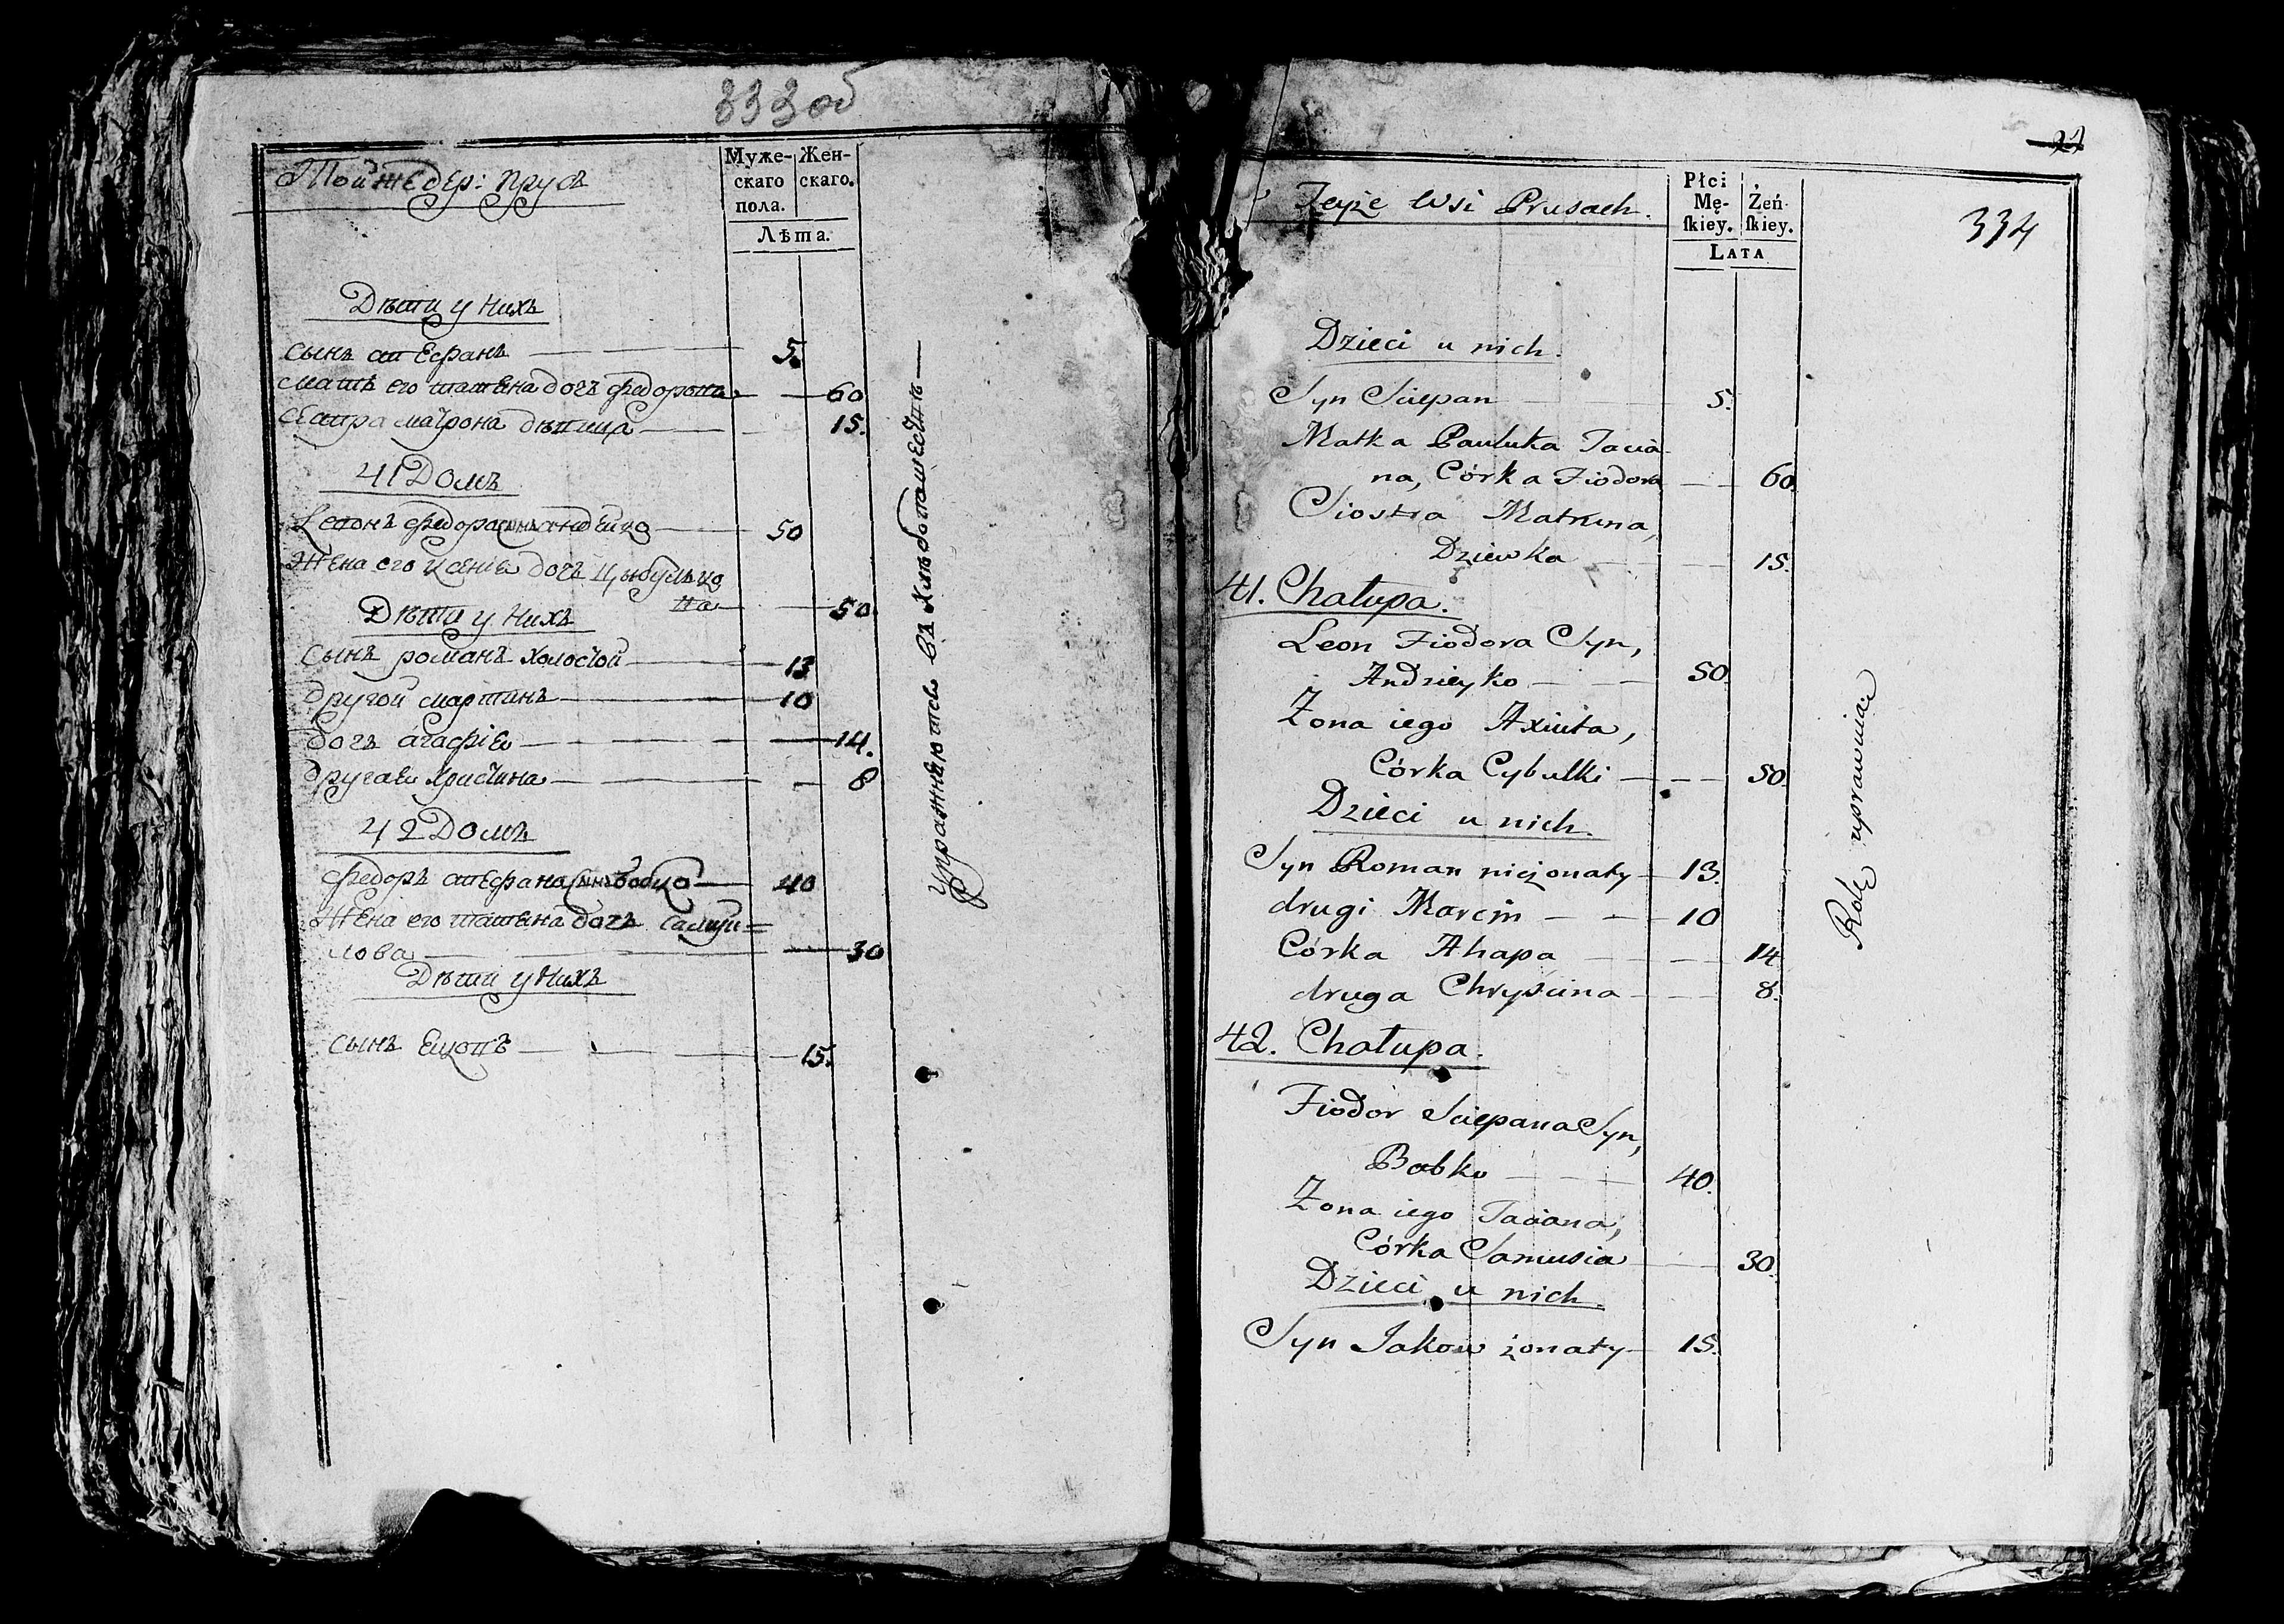 333 об
Той же дер: Прусъ
Муже-
скаго
пола.
Жен-
скаго.
Лѣта.
Дѣти у нихъ
сынъ стефанъ 5.
мать его татьяна дочь федорова 60
сестра матрона дѣвица 15.
41 Домъ
Леонъ федора сынъ андейко 50
Жена его ксенія дочь цыбулько
ва 50
Дѣти у нихъ
сынъ романъ холостой 13
другой мартинъ 10
дочь агафія 14.
другая христина 8
42 Домъ
федоръ стефана сынъ бобко 40
Жена его татьяна дочь самуи=
лова 30
Дѣти у нихъ
сынъ 15.
упражняются въ хлѣбопашествѣ
22
334
Teyże Wsi Prusach.
Płci
Mę-
skiey.
Żeń-
skiey.
LATA
Dzieci u nich.
Syn Sciepan 5.
Matka Pauluka Tacia-
na, Córka Fiodora 60.
Siostra Matruna,
Dziewka 15.
41. Chałupa.
Leon Fiodora Syn,
Andzieyko 50.
Żona iego Axiuta,
Córka Cybulki 50.
Dzieci u nich.
Syn Roman nieżonaty 13.
drugi Marcin 10
Córka Ahapa 14
druga Chryścina 8.
42. Chałupa.
Fiodor Sciepana Syn,
Bobko 40.
Żona iego Taciana,
Córka Samusia 30.
Dzieci u nich.
Syn Jakow żonaty 15.
Rolę uprawuia